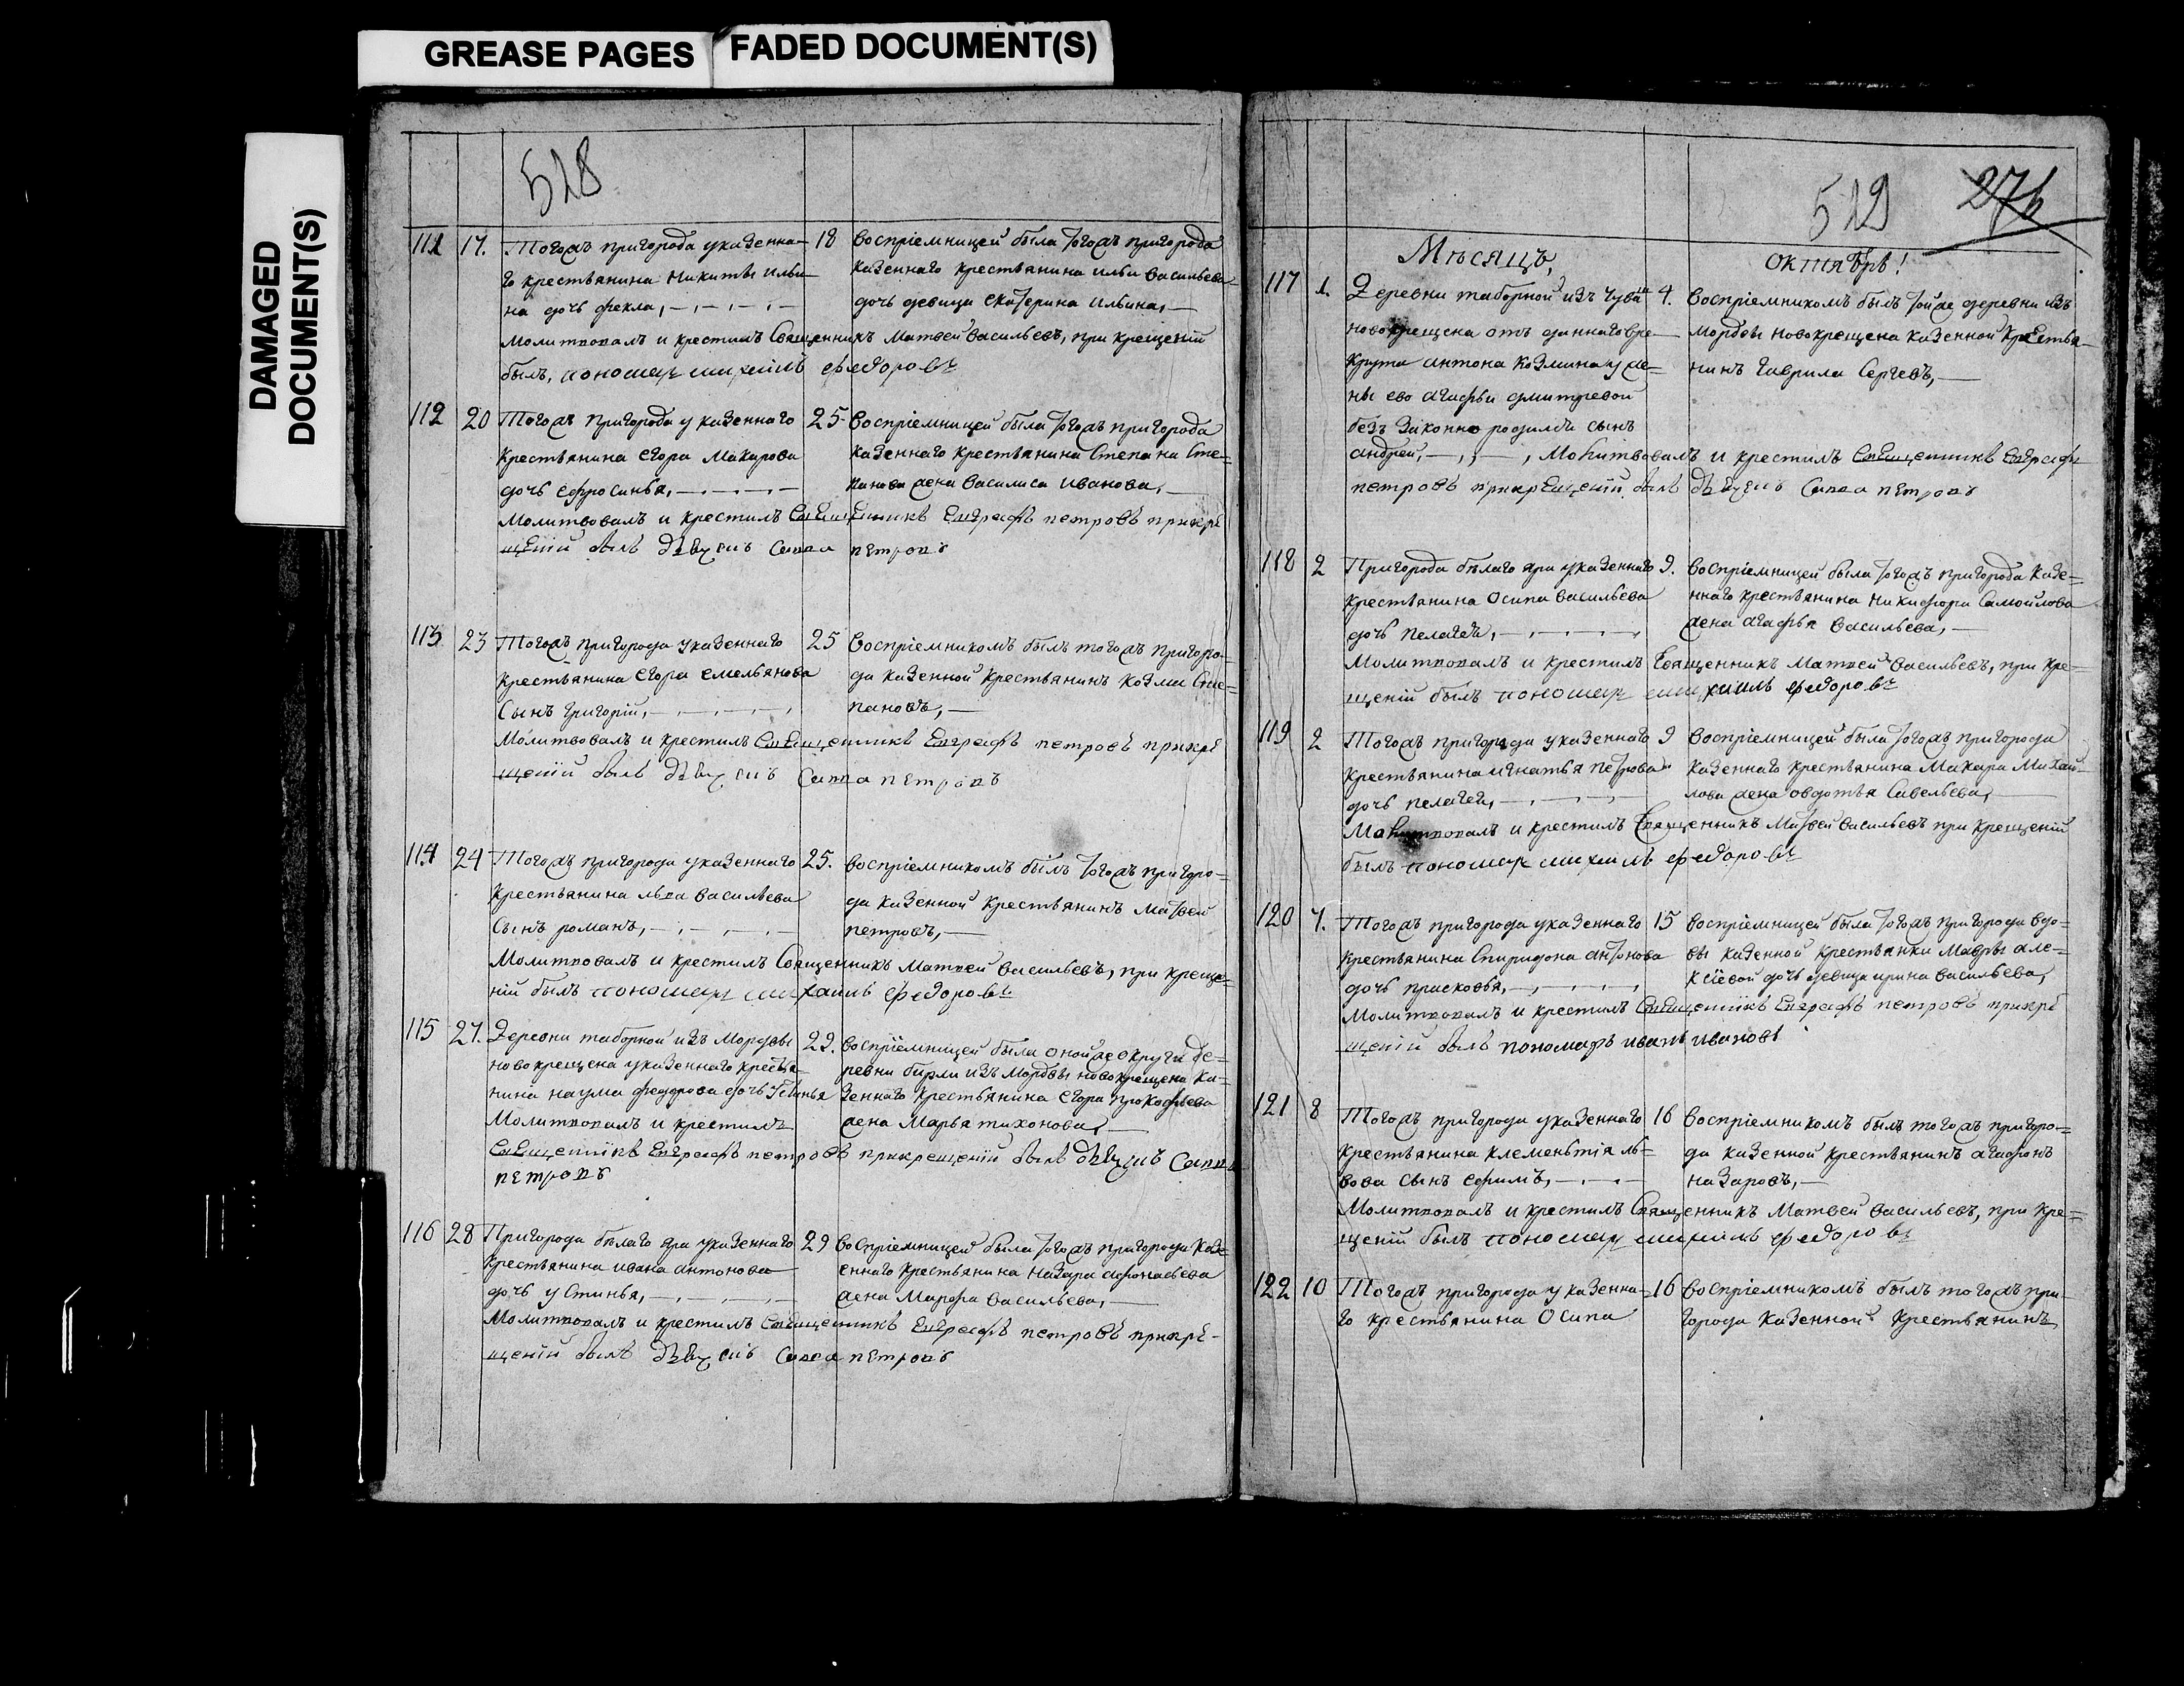 GREASE PAGES
FADED DOCUMENT(S)
DAMAGED
DOCUMENT(S)
528
111 17. Тогожъ пригорода указенна- 18 воспріемницей была тогожъ пригорода
го крестьянина никиты ильи- казеннаго крестьянина ильи васильева
на дочь фекла, дочь девица екатерина ильина,
молитвовалъ и крестилъ Священникъ Матвей васильевъ, при крещеніи
былъ, пономарь михаилъ федоровъ
112 20 Тогожъ пригорода у казеннаго 25 воспріемницей была тогожъ пригорода
крестьянина егора Макарова казеннаго крестьянина Степана Сте=
дочь ефросинья, панова жена василиса иванова,
молитвовалъ и крестилъ Священникъ Евграфъ петровъ прикре
щеніи былъ дьячекъ Савва петровъ
113 23 Тогожъ пригорода указеннаго 25 воспріемникомъ былъ тогожъ пригоро-
крестьянина егора емельянова да казенной крестьянинъ козма Сте=
Сынъ григорій, пановъ,
Молитвовалъ и крестилъ Священникъ Евграфъ петровъ прикре
щеніи былъ дьячекъ Савва петровъ
114 24 Тогожъ пригорода указеннаго 25. воспріемникомъ былъ тогожъ пригоро=
крестьянина льва васильева да казенной крестьянинъ матвей
Сынъ романъ, петровъ,
Молитвовалъ и крестилъ Священникъ матвей васильевъ, при креще=
ніи былъ пономарь михаилъ федоровъ
115 27. Деревни таборной изъ Мордвы 29. воспріемницей была оной же округи де=
новокрещена указеннаго крестья- ревни бирли изъ мордвы новокрещена ка=
нина наума федорова дочь зеннаго крестьянина егора прокофьева
Молитвовалъ и крестилъ жена Марья тихонова,
Священникъ Евграфъ петровъ прикрещеніи былъ дьячекъ Савва
петровъ
116 28 Пригорода бѣлаго яра указеннаго 29 воспріемницей была тогожъ пригорода каз=
крестьянина ивана антонова еннаго крестьянина назара афонасьева
дочь устинья, жена Марфа васильева,
Молитвовалъ и крестилъ Священникъ Евграфъ петровъ прикре-
щеніи былъ дьячекъ Савва петровъ
529 276
Мѣсяцъ, октябрь!
117 1. Деревни таборной изъ чуваш 4. воспріемникомъ былъ тойже деревни изъ
новокрещена отъ даннаго вре- мордвы новокрещена казенной крестья-
крута антона козмина у же= нинъ гаврила Сергевъ,
ны ево агафьи дмитревой
безъ законно родился сынъ
андрей, Молитвовалъ и крестилъ Священникъ Евграфъ
петровъ прикрещеніи былъ дьячекъ Савва петровъ
118 2 Пригорода бѣлаго яра указеннаго 9. воспріемницей была тогожъ пригорода казе=
крестьянина осипа васильева ннаго крестьянина никифора Самойлова
дочь пелагея, жена агафья васильева,
Молитвовалъ и крестилъ Священникъ Матвей васильевъ, при кре=
щеніи былъ пономарь михаилъ федоровъ
119 2 Тогожъ пригорода указеннаго 9 воспріемницей была тогожъ пригорода
крестьянина игнатья петрова казеннаго крестьянина Макара Михай=
дочь пелагея, лова жена овдотья Савельева,
Молитвовалъ и крестилъ Священникъ Матвей васильевъ при крещеніи
былъ пономарь михаилъ федоровъ
120 7. Тогожъ пригорода указеннаго 15 воспріемницей была тогожъ пригорода вдо=
крестьянина Спиридона антонова вы казенной крестьянки мавры але=
дочь прасковья, ксіевой дочь девица ирина васильева,
Молитвовалъ и крестилъ Священникъ Евграфъ петровъ прикре
щеніи былъ пономарь иванъ ивановъ
121 8 Тогожъ пригорода указеннаго 16 воспріемникомъ былъ тогожъ пригоро=
крестьянина клементія ль= да казенной крестьянинъ агафонъ
вова сынъ ефимъ, назаровъ,
Молитвовалъ и крестилъ Священникъ Матвей васильевъ, при кре=
щеніи былъ пономарь михаилъ федоровъ
122 10 Тогожъ пригорода указенна= 16 воспріемникомъ былъ тогожъ при-
го крестьянина Осипа города казенной крестьянинъ